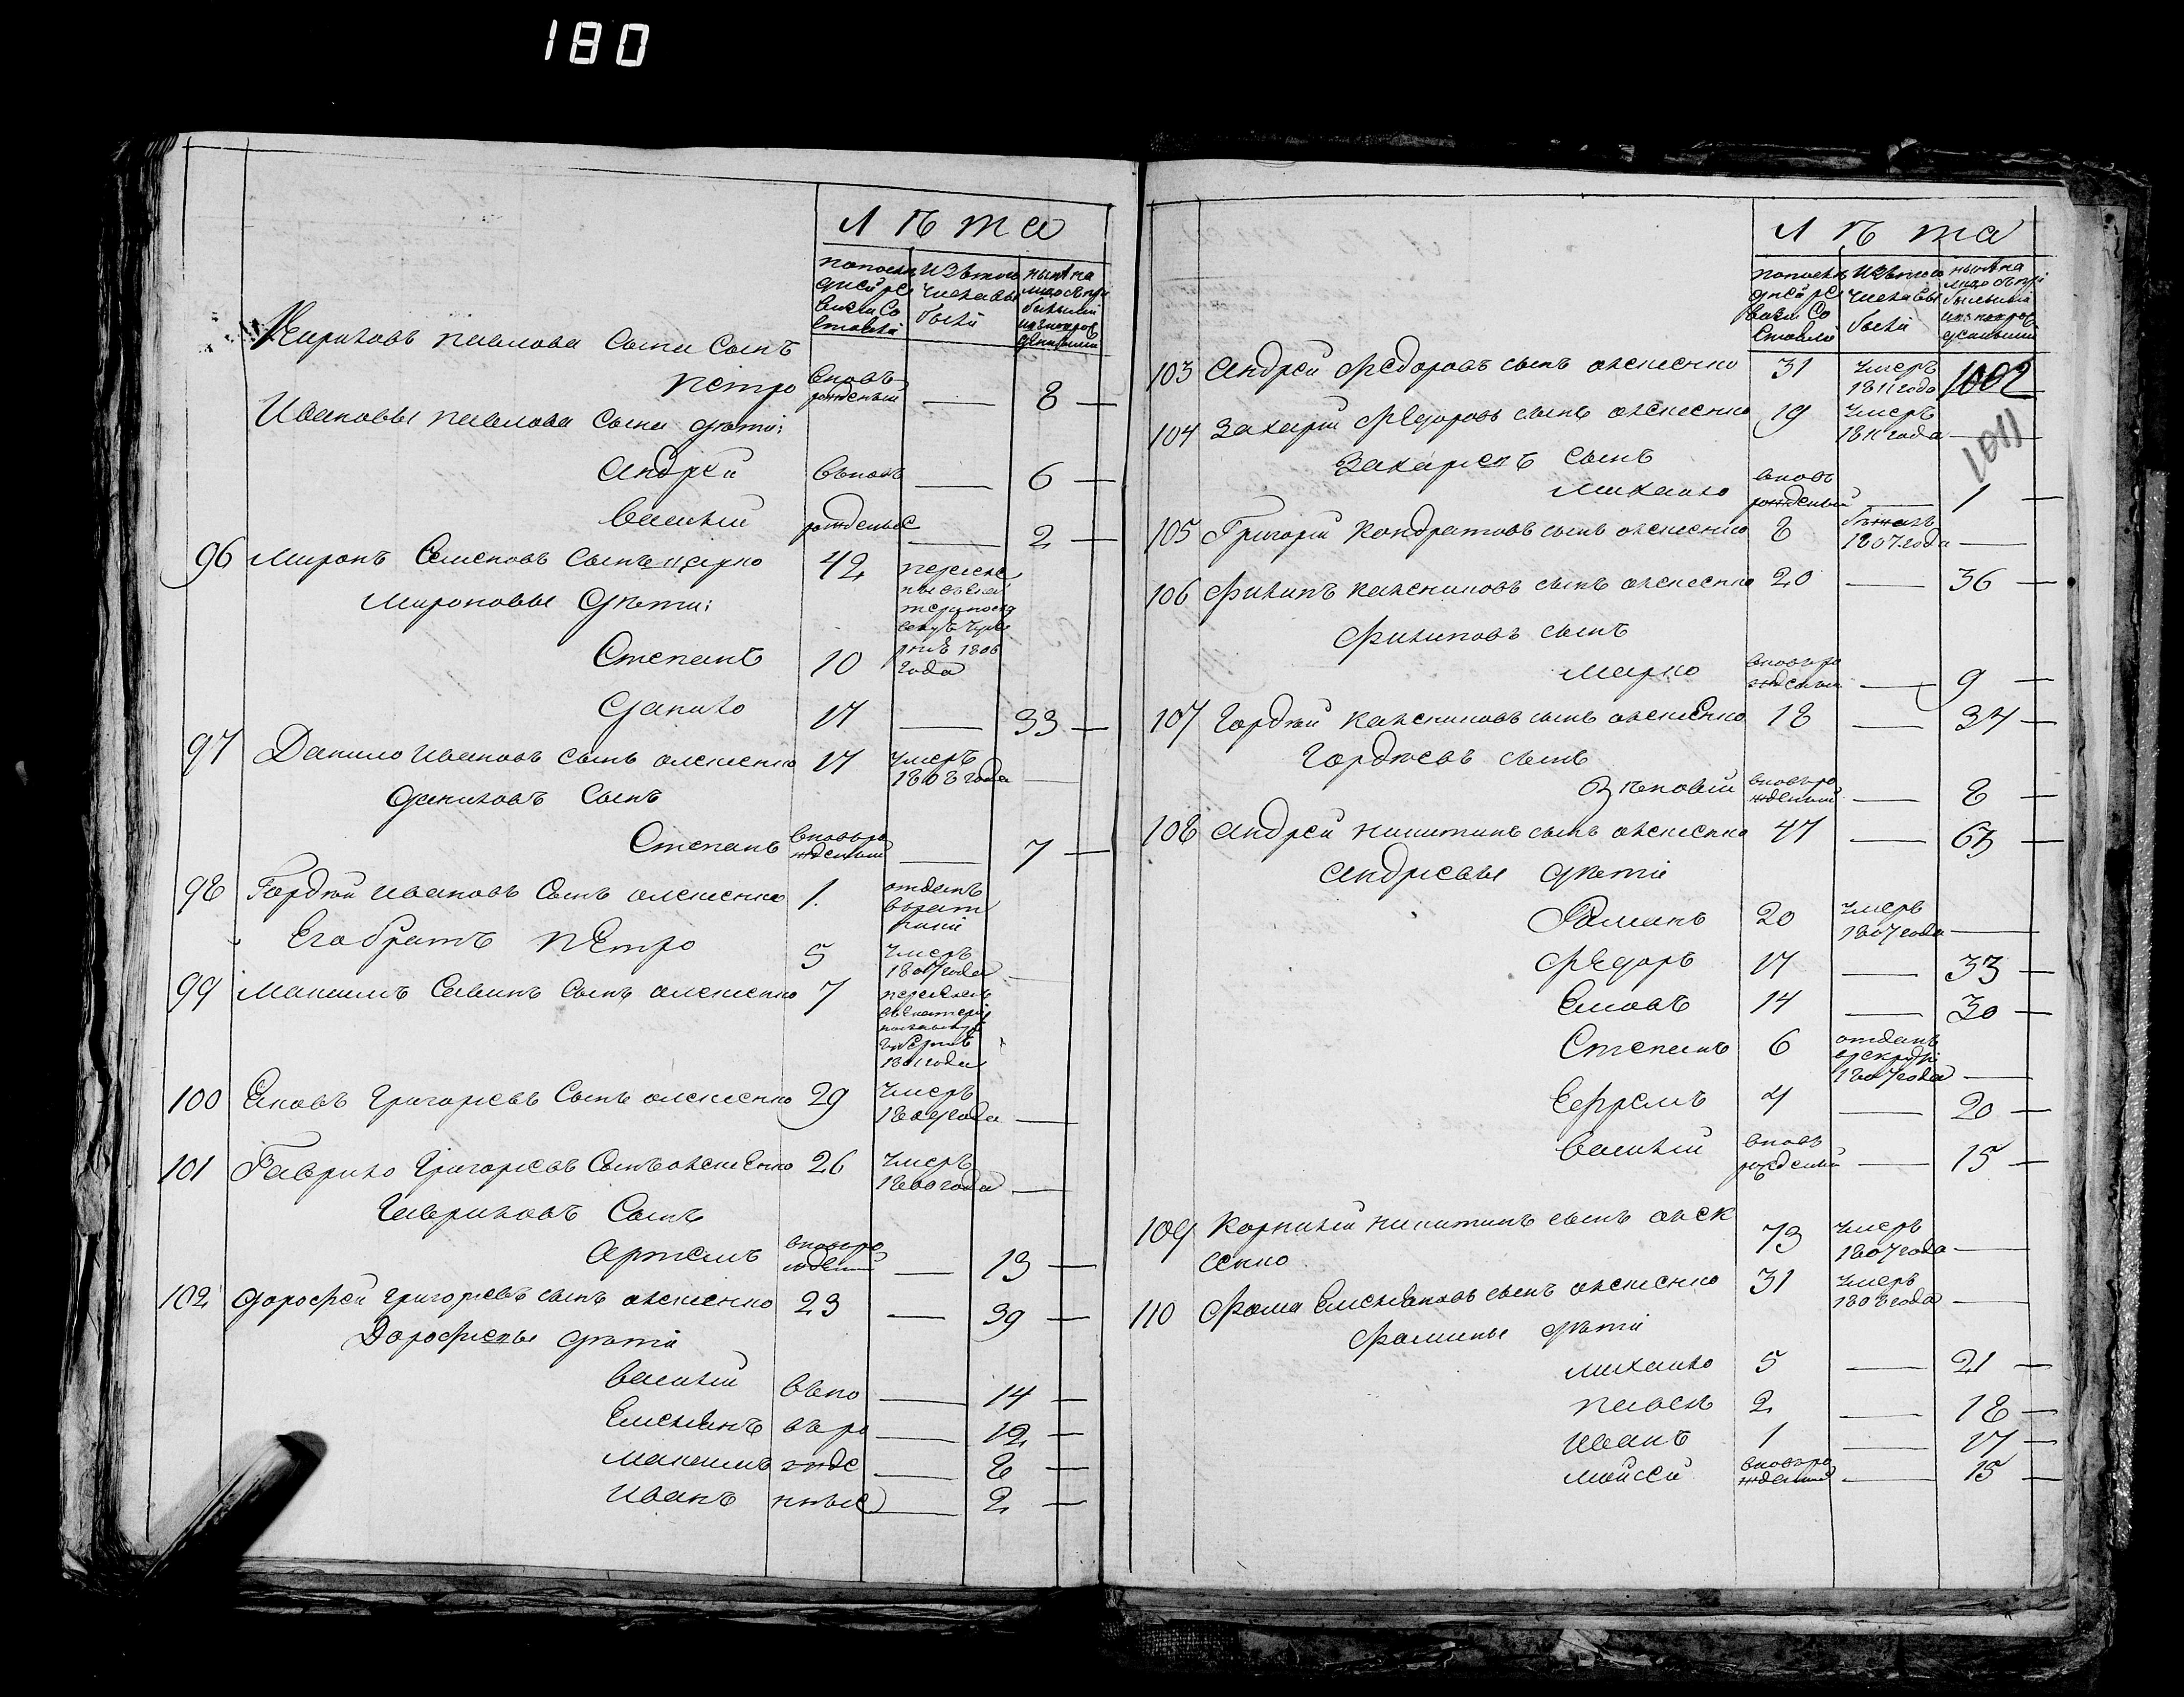 180
Лѣта
По последней ревизии состояли
Изъ того числа выбыли
Ныне на лицо съ прибылыми
Кириловъ Павлова сына сынъ
Петро вновь рожденный — 8 —
Ивановы Павлова сына дѣти:
Андрей вновь — 6 —
Василий рожденные — 2 —
96 Миронъ Семеновъ сынъ 42
Мироновы дѣти:
Степанъ 10 1806 года
Данило 17 — 33 —
97 Данило Ивановъ сынъ Олексенко 17 умеръ 1808 года —
Даниловъ сынъ
Степанъ вновь рожденный — 7 —
98 Гордѣй Ивановъ сынъ Олексенко 1. отданъ
Его братъ Петро 5 умеръ 1807 года —
99 Максимъ Савинъ сынъ Олексенко 7 1801 года
100 Яковъ Григорьевъ сынъ Олексенко 29 умеръ 1809 года —
101 Гаврило Григорьевъ сынъ Олексенко 26 умеръ 1800 года —
Гавриловъ сынъ
Артемъ вновь рожденный — 13 —
102 Дорофей Григорьевъ сынъ Олексенко 23 — 39 —
Дорофеевы дѣти
Василий вьно — 14 —
Емельянъ въ ро — 12 —
Максимъ жде — 8 —
Иванъ нные — 2 —
Лѣта
По последней ревизии состояли
Изъ того числа выбыли
Ныне на лицо съ прибылыми
103 Андрей Федоровъ сынъ Олексенко 31 умеръ 1811 года
1002
1011
104 Захарий Федоровъ сынъ Олексенко 19 умеръ 1811 года —
Захариевъ сынъ
Михайло вновь рожденный — 1 —
105 Григорий Кондратовъ сынъ Олексенко 8 бѣжалъ 1807 года —
106 Филипъ Калениковъ сынъ Олексенко 20 — 36 —
Филиповъ сынъ
Марко вновь рожденный — 9 —
107 Гордѣй Калениковъ сынъ Олексенко 18 — 34 —
Гордѣевъ сынъ
Зѣновий вновь рожденный — 8 —
108 Андрей Никитинъ сынъ Олексенко 47 — 63 —
Андреевы дѣти
Романъ 20 умеръ 1807 года —
Федоръ 17 — 33 —
Яковъ 14 — 30 —
Степанъ 6 отданъ в рекруты 1807 года —
Ефремъ 4 — 20 —
Василий вновь рожденный — 15 —
109 Корнилий Никитинъ сынъ Олек
сенко 43 умеръ 1807 года —
110 Фома Емельяновъ сынъ Олексенко 31 умеръ 1808 года —
Фомины дѣти
Михайло 5 — 21 —
Павелъ 2 — 18 —
Иванъ 1 — 17 —
Мойсей вновь рожденный — 15 —